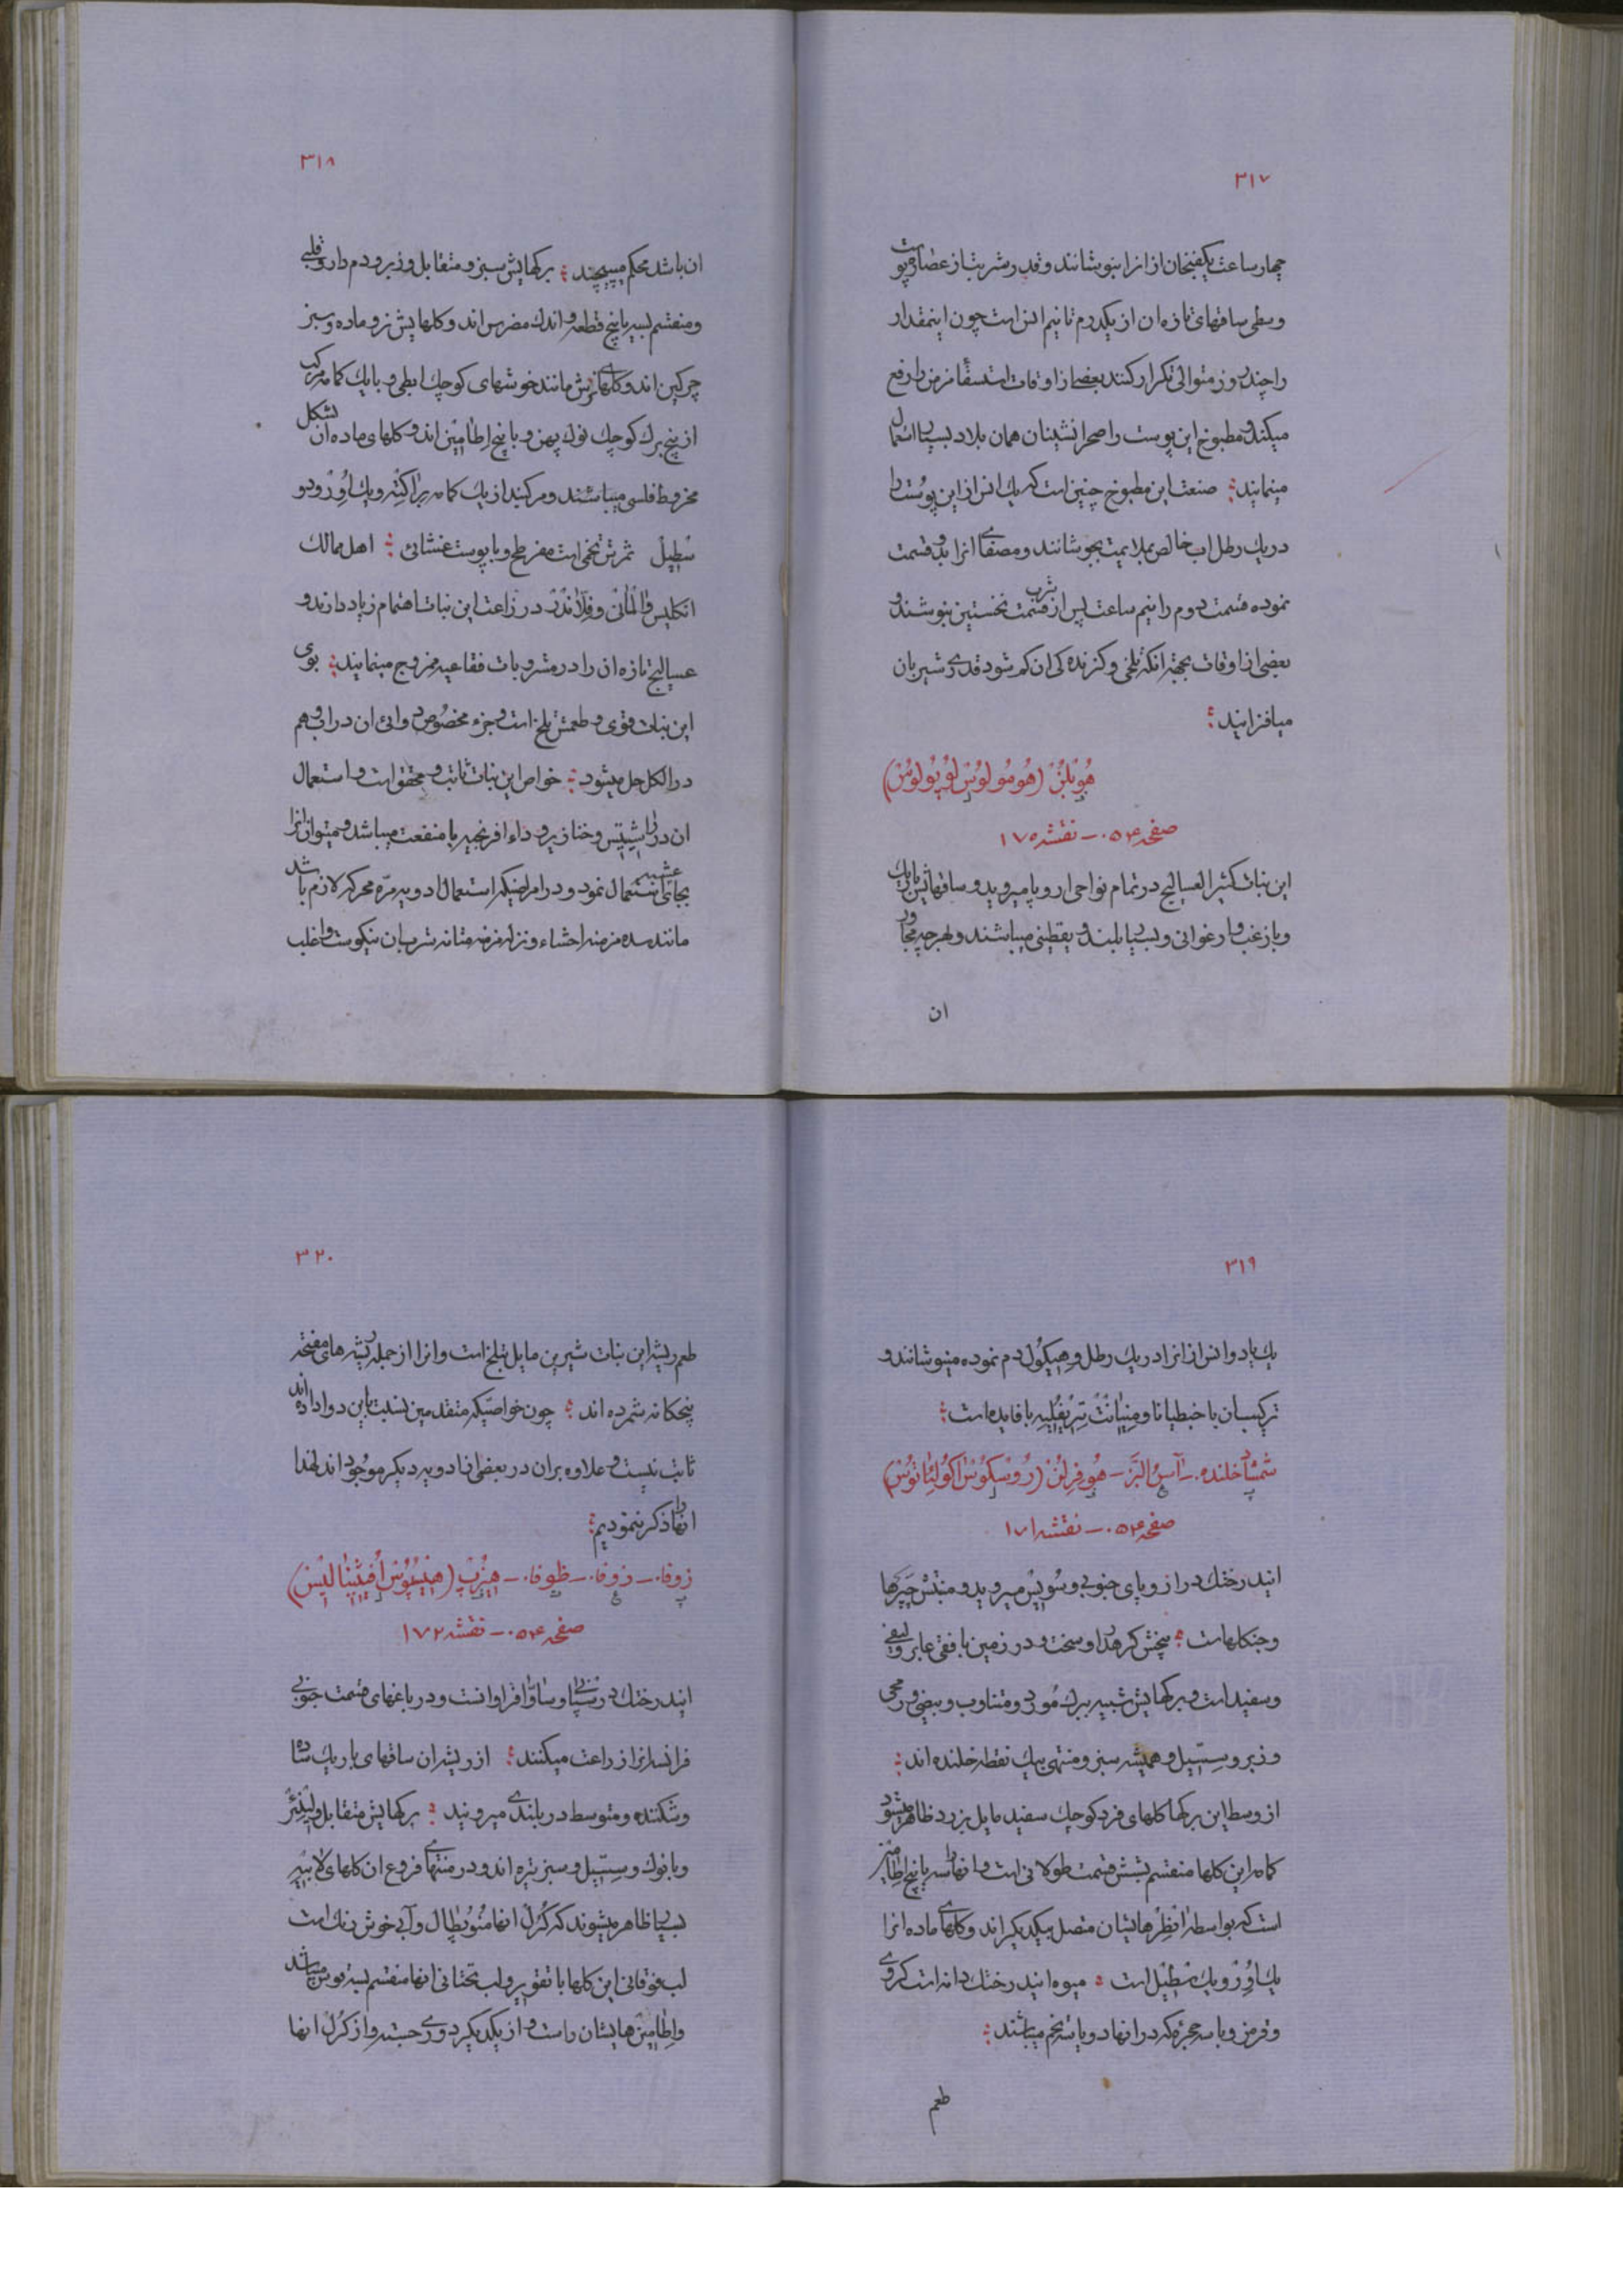 ٣١٧
چهار ساعت یکفنجان از انرا بنوشانند و قدر شربتاز عصارهٔ پوست
وسطی ساقهای تازه ان از یکدرم تا نیم انس است چون اینمقدار
را چند روز متوالی تکرار کنند بعضی از اوقات استسقاء مزمن را رفع
میکند و مطبوخ این پوست را صحرا نشینان همان بلاد بسیار استعمال
مینمایند صنعت این مطبوخ چنین است که یک انس از این پوست را
در یک رطل اب خالص بملایمت بجوشانند و مصفای انرا بدو قسمت
نموده قسمت دوم را نیم ساعت پس از شرب قسمت نخستین بنوشند و
بعضی از اوقات بجهة انکه تلخی و کزندکی ان کم شود قدری شیر بان
میافزایند
هُوبْلُنْ (هُومُولوُسْ لوُپُولوُسْ)
صفحه ٥٤٠ ـ نقشه ١٧٠
این نبات کثیر العسالیج در تمام نواحی اروپا میروید و ساقهایش باریک
و با زغب و ارغوانی و بسیار بلند و یقطینی میباشند و بهر چه مجاور
ان
٣١٨
ان باشد محکم میپیچند برکهایش سبز و متقابل و زبر و دم دار و قلبی
و منقسم بسه یا پنج قطعه و اندک مضرس اند و کلهایش نر و ماده و سبز
چرکین اند و کلهای نرش مانند خوشهای کوچک ابطی و با یک کاسه مرکب
از پنج برک کوچک نوک پهن و با پنج اِطامین اند و کلهای ماده ان بشکل
مخروط فلسی میباشند و مرکبند از یک کاسه براکته و یک اُوِرْ و دو
سْطیل ثمرش تخمی است مفرطح و با پوست غشائی اهل ممالک
انکلیس و المانی و فِلاندْرْ در زراعت این نبات اهتمام زیاد دارند و
عسالیج تازه ان را در مشروبات فقاعیه ممزوج مینمایند بوی
این نبات قوی و طعمش تلخ است و جزء مخصوص دوائی ان در اب و هم
در الکل حل میشود خواص این نبات ثابت و محقق است و استعمال
ان در راشیتیس و خنازیر و داء افرنجیه با منفعت میباشد و میتوان انرا
بجای عشبه استعمال نمود و در امراضیکه استعمال ادویه مرّه محرکه لازم باشد
مانند سده مزمنه احشاء و نزله مزمنه مثانه شرب ان نیکوست و اغلب
٣١٩
یک یا دو انس از انرا در یک رطل وهیکول دم نموده مینوشانند و
ترکیب ان با خبطیانا و مِنیانْتْ تِریفُلیه با فایده است
شمشاد خلنده ـ آسُ البَرّ ـ هُوفِرِلُنْ (رُوسْکوُسْ آکوُلِئاتوُسْ)
صفحه ٥٤٠ ـ نقشه ١٧١
ایند رختک در اروپای جنوبی و سُویِس میروید و منبتش چپرها
و جنکلهاست بیخش کره دار و سخت و در زمین بافقی عابر و لیفی
و سفید است و برکهایش شبیه ببرک مُورد و متناوب و بیضی و رمحی
و زبر و سِسّیل و همیشه سبز و منتهی بیک نقطه خلنده اند
از وسط این برکها کلهای فرد کوچک سفید مایل بزرد ظاهر میشود
کاسه این کلها منقسم بشش قسمت طولانی است و انها را سه یا پنج اِطامین
است که بواسطه انطِرهایشان متصل بیکدیکر اند و کلهای ماده انرا
یک اُوِرْ و یک سْطیل است میوه ایند رختک دانه است کروی
و قرمز و با سه حجره که در انها دو یا سه تخم میباشند
طعم
٣٢٠
طعم ریشه این نبات شیرین مایل بتلخ است و انرا از جمله ریشه های مفتحه
پنجکانه شمرده اند چون خواصیکه متقدمین نسبت باین دوا داده اند
ثابت نیست و علاوه بران در بعضی از ادویه دیکر موجود اند لهذا
انها را ذکر ننمودیم
زوفا ـ ذوفا ـ ظوفا ـ هیزُپ (هِیسُپُوسْ اُفیسینالیسْ)
صفحه ٥٤٠ ـ نقشه ١٧٢
ایند رختک در سیبریا و ساوُا فراوانست و در باغهای قسمت جنوبی
فرانسه انرا زراعت میکنند از ریشه ان ساقهای باریک ساده
و شکننده و متوسط در بلندی میرویند برکهایش متقابل و لِینِئَرْ
و با نوک و سِسّیل و سبز تیره اند و در منتهای فروع ان کلهای لابیّه
بسیار ظاهر میشوند که کُرُل انها مُنوُپِطال و آبی خوش رنک است
لب فوقانی این کلها با تقویر و لب تحتانی انها منقسم بسه قوس میباشد
و اِطامین هایشان راست و از یکدیکر دوری جسته و از کُرُل انها